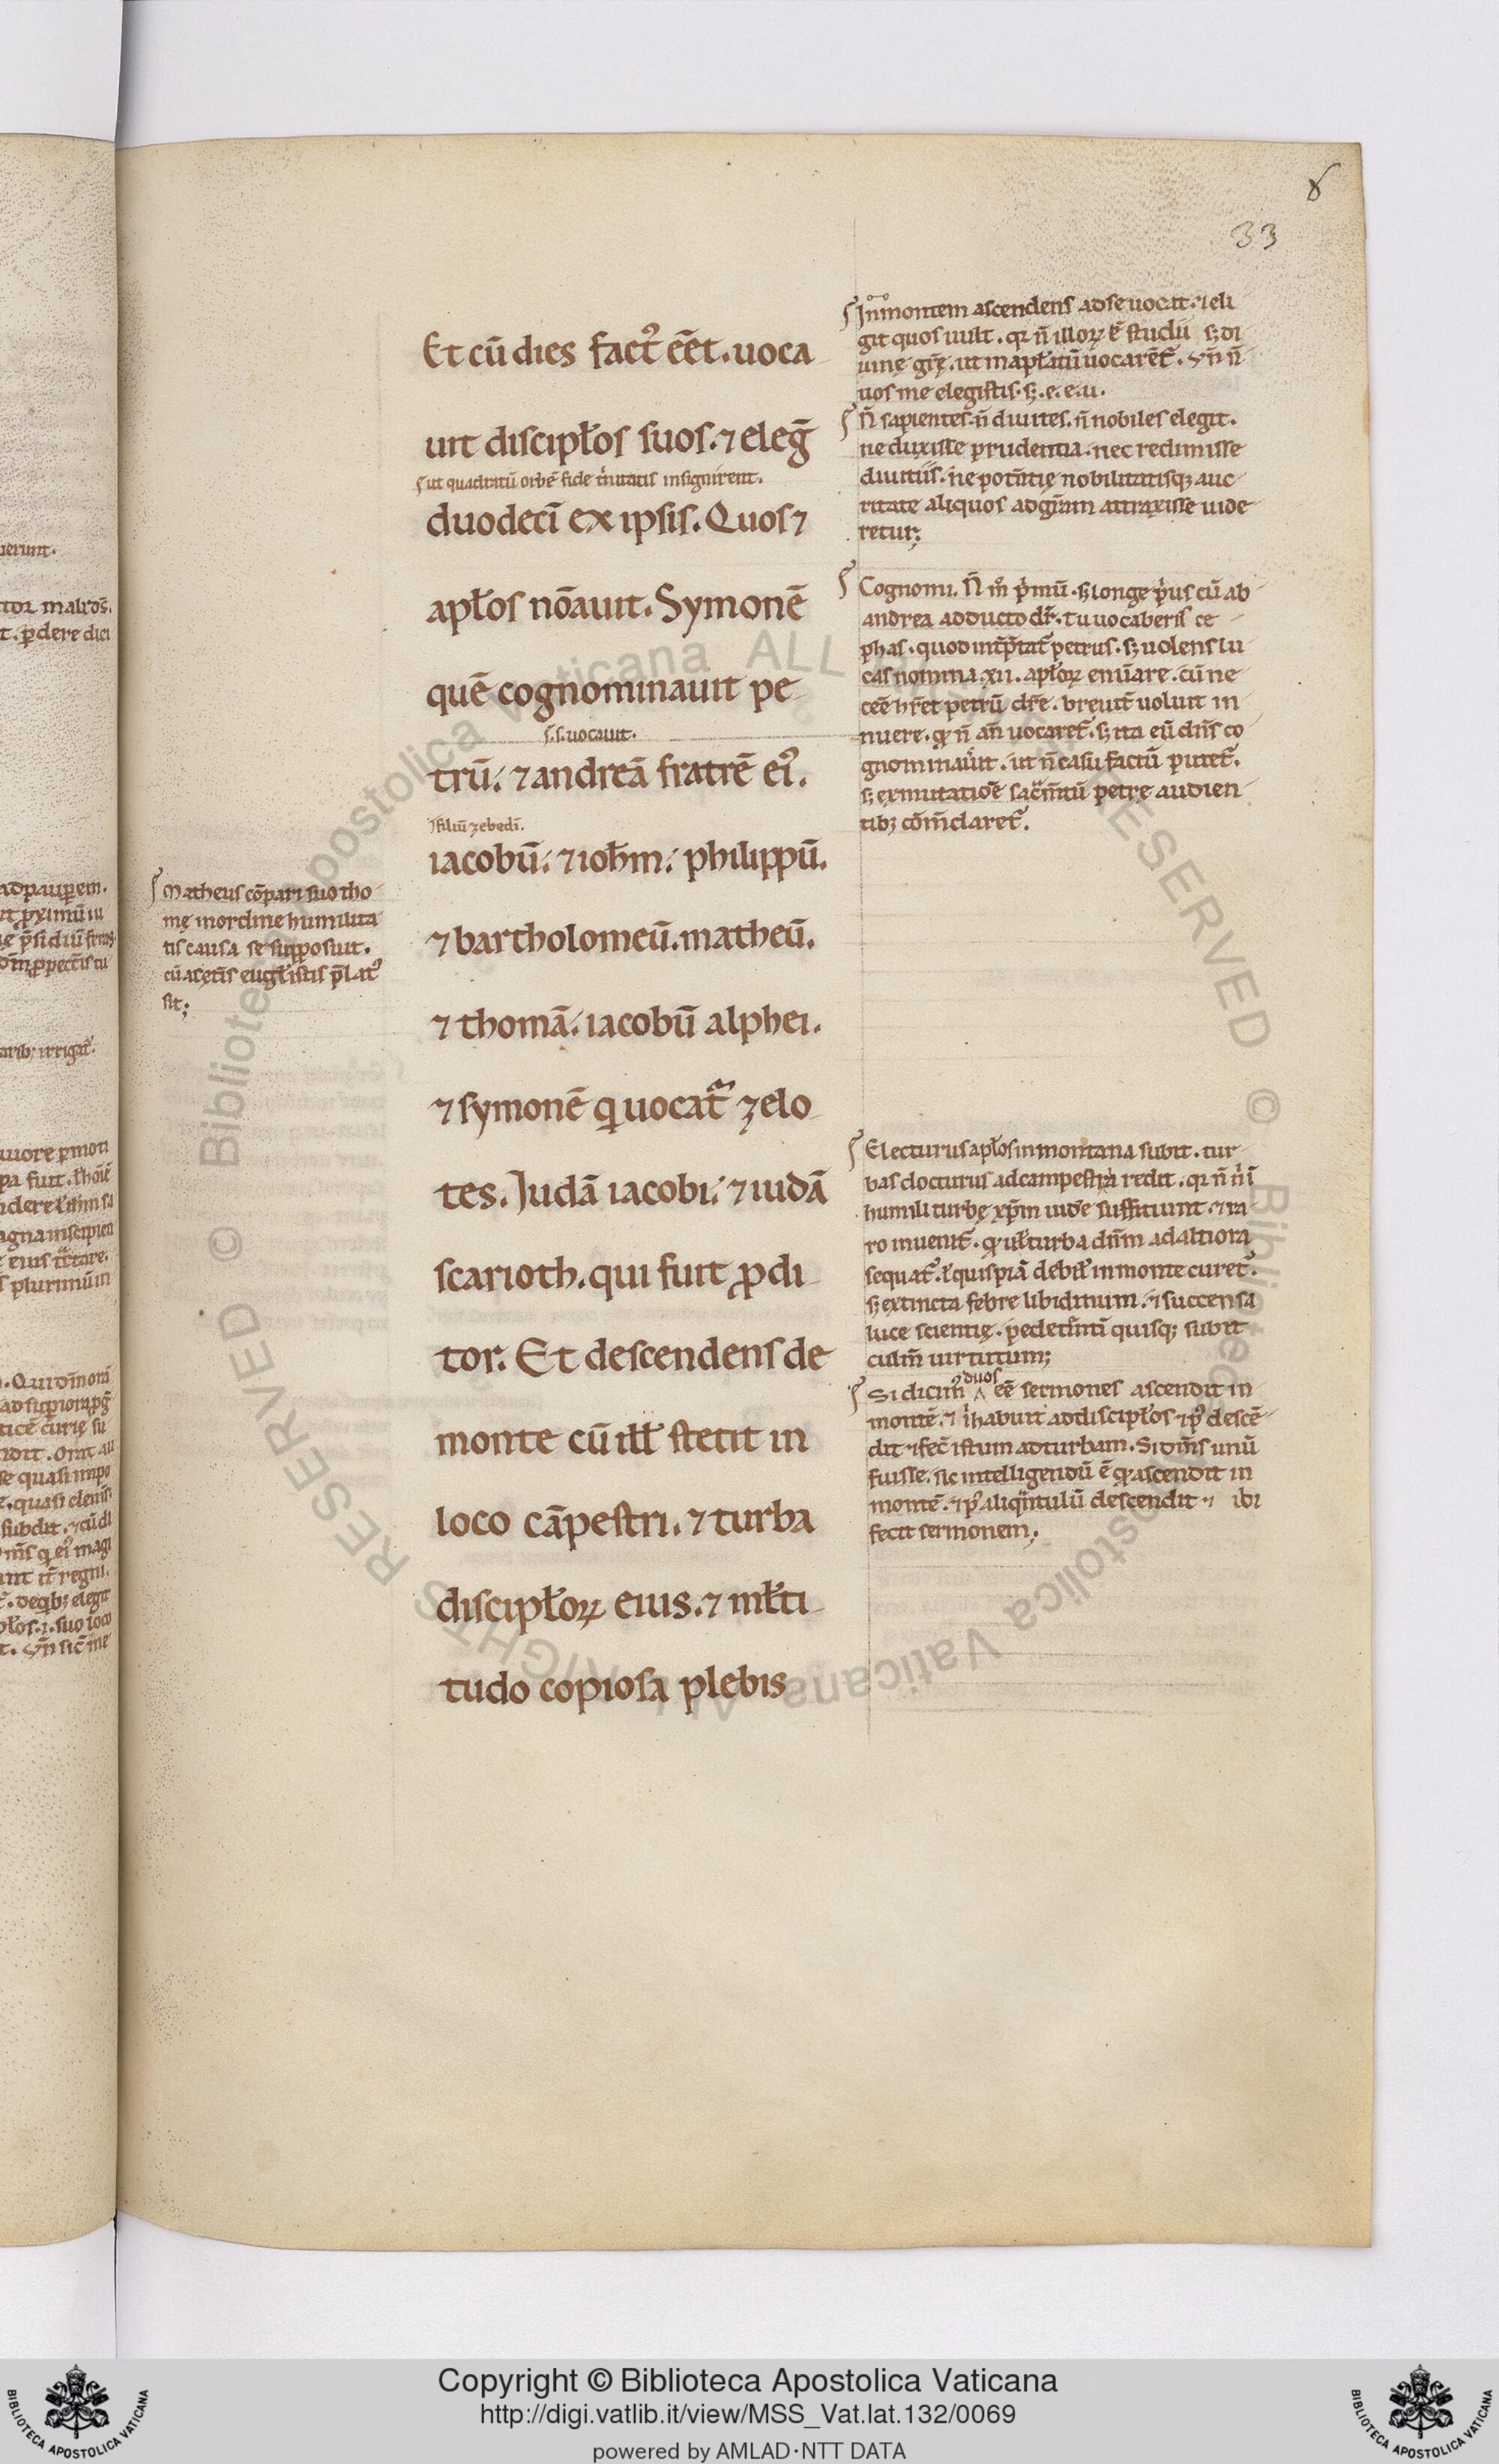 33
Et cũ dies fact᾽ eēt. uoca
uit discipłos suos. ⁊ eleg̃
ſut quadratũ orbẽ fide t̾nitatis insignirent.
duodeci ̃ ex ipsis. Quos ⁊
apłos nōauit. Symonẽ
quẽ cognominauit pe
s. s. uocauit.
trũ. ⁊ andreã fratrẽ ei᾽.
filiũ zebedi ̃.
iacobũ. ⁊ ioh̃m. philippũ.
⁊ bartholomeũ. matheũ.
⁊ thomã. iacobũ alphei.
⁊ symonẽ q uocat᾽ zelo
tes. Judã iacobi. ⁊ iudã
scarioth. qui fuit ꝓdi
tor. Et descendens de
monte cũ ill̃ stetit in
loco cãpestri. ⁊ turba
discipłoꝝ eius. ⁊ młti
tudo copiosa plebis
Matheus cõpari suo tho
mę in ordine humilita
tis causa se supposuit.
cũ a cęt̃is eugłistis p̃lat᾽
sit;
In montem ascendens ad se uocat. ⁊ eli
git quos uult. qr ñ illoꝝ ẽ studii sꝫ di
uinę gr̃ę. ut in apłatũ uocarẽt᾽. Vñ ñ
uos me elegistis. sꝫ. e. e. u.
Ñ sapientes. ñ diuites. ñ nobiles elegit.
ne duxisse prudentia. nec redimisse
diuitiis. ne potñtię nobilitatisqꝫ auc
ritate aliquos ad gr̃am attraxisse uide
retur;
Cognomi. Ñ m̊ p̾mũ. sꝫ longe p̾us cũ ab
andrea adducto dr̃. tu uocaberis ce
phas. quod int̃p̃tat᾽ petrus. sꝫ uolens lu
cas nomina. xii. apłoꝝ enũare. cũ ne
ceẽ hr̃et petrũ dr̃e. breuit̃ uoluit in
nuere. ꝙ ñ añ uocaret᾽. sꝫ ita eũ dñs co
gnominauit. ut ñ casu factũ putet᾽.
sꝫ ex mutatiõe sac̃m̃tũ petre audien
tibꝫ cõm̃daret᾽.
Electurus apłos in montana subit. tur
bas docturus ad campestria redit. qr ñ ñ in ̃
humili turbę xp̃m uide᾽ sufficiunt. ⁊ ra
ro inuenit᾽. ꝙ uł turba dñm ad altiora
sequat᾽. ł quispiã debił in monte curet᾽.
sꝫ extincta febre libidinum. ⁊ succensa
luce scientię. pedetẽti ̃ quisqꝫ subit
culm̃ uirtutum;
duos
Si dicim᾽ eẽ sermones ascendit in
montẽ. ⁊ i ̾ habuit ad discipłos ⁊ p᾽ descẽ
dit ⁊ fec̃ istum ad turbam. Si oĩs unũ
fuisse. sic intelligendũ ẽ ꝙ ascendit in
montẽ. ⁊ p᾽ aliqñtulũ descendit. ⁊ ibi
fecit sermonem;
Copyright © Biblioteca Apostolica Vaticana
http://digi.vatlib.it/view/MSS_Vat.lat.132/0069
powered by AMLAD·NTT DATA
BIBLIOTECA APOSTOLICA VATICANA
BIBLIOTECA APOSTOLICA VATICANA
© Biblioteca Apostolica Vaticana ALL RIGHTS RESERVED
© Biblioteca Apostolica Vaticana ALL RIGHTS RESERVED